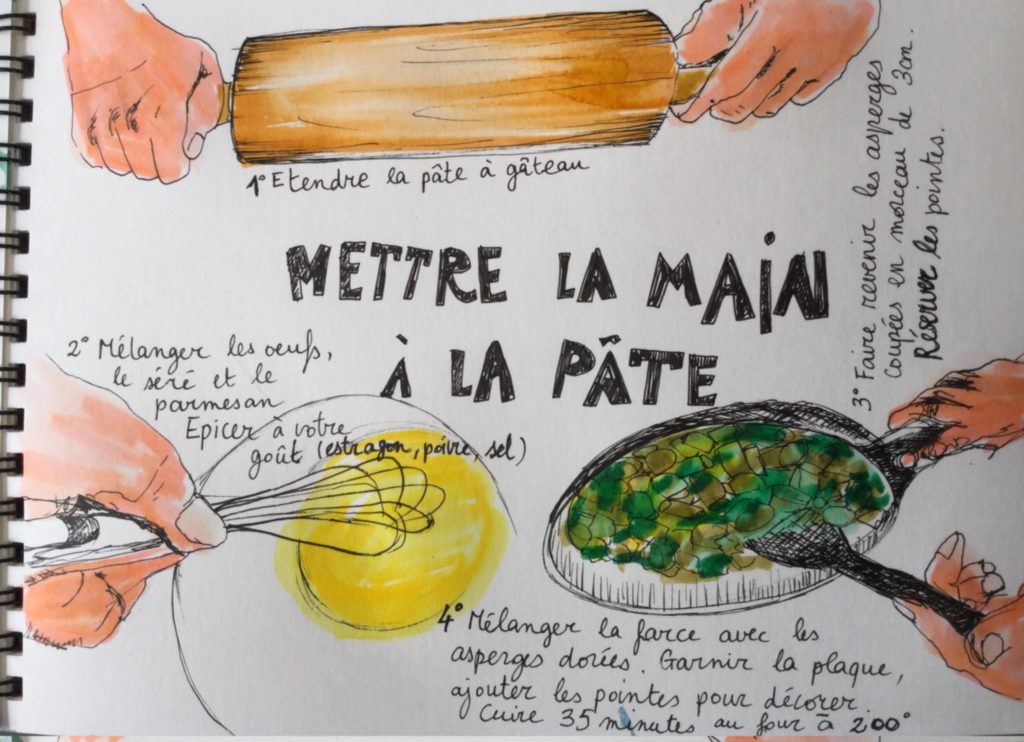 1° Etendre la pâte à gâteau
METTRE LA MAIN
À LA PÂTE
2° Mélanger les oeufs,
le séré et le
parmesan
Epicer à votre
goût (estragon, poivre, sel)
3° Faire revenir les asperges
coupées en morceau de 3cm.
Réserver les pointes.
4° Mélanger la farce avec les
asperges dorées. Garnir la plaque,
ajouter les pointes pour décorer.
Cuire 35 minutes au four à 200°